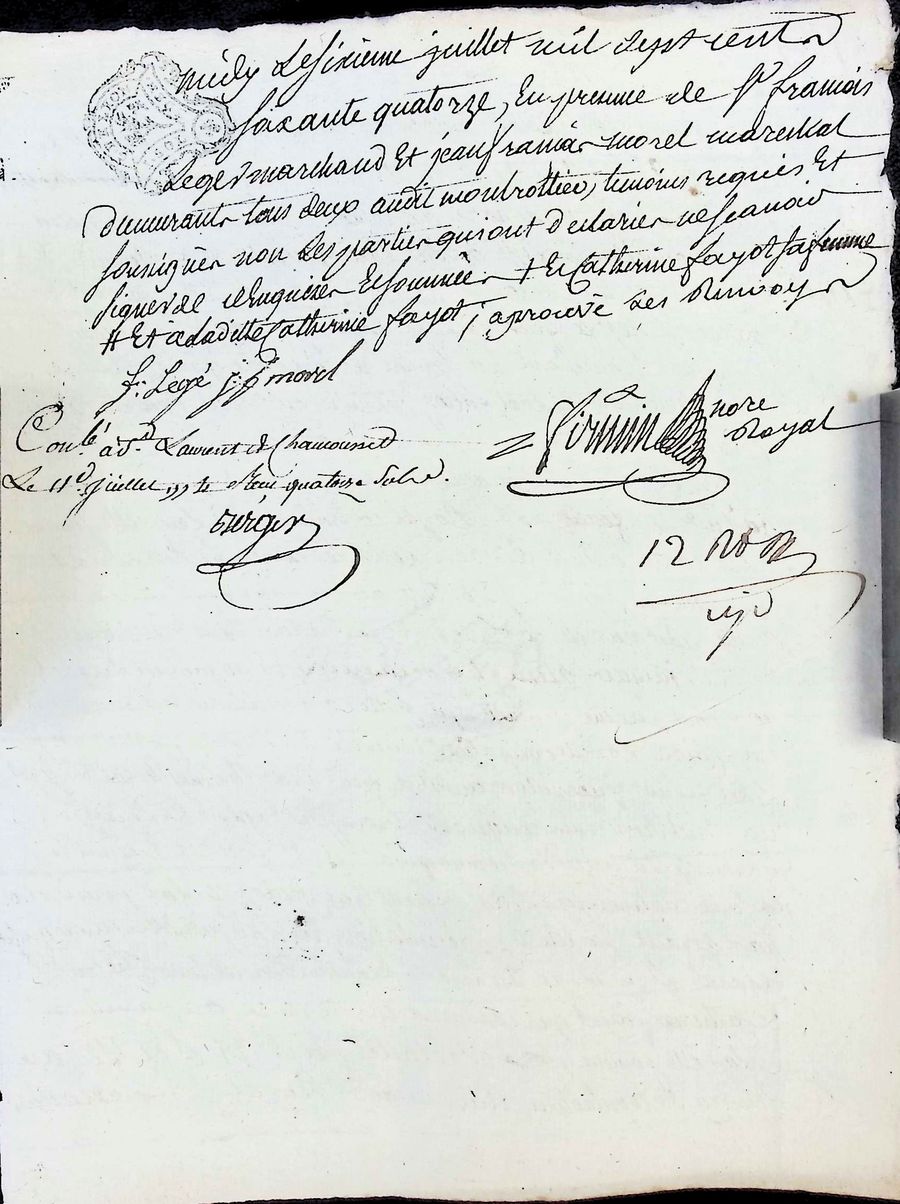 midy Le sixieme juillet mil sept cent
soixante quatorze, En presence de Sr francois
Leger marchand Et jean francois morel mareschal
demeurants tous deux audit montrottier, temoins requis Et
soussignés non Les parties qui ont declarées ne scavoir
signer de ce Enquises Et sommées + Et Catherine fayot sa femme
# Et a Laditte Catherine fayot, aprouvé Les Renvoys
f: Legé j: f morel
Conlé a St Laurent de Chamousset
Le 11e juillet mil sept cent soixante quatorze
Vergier
Firmin nore
Royal
12